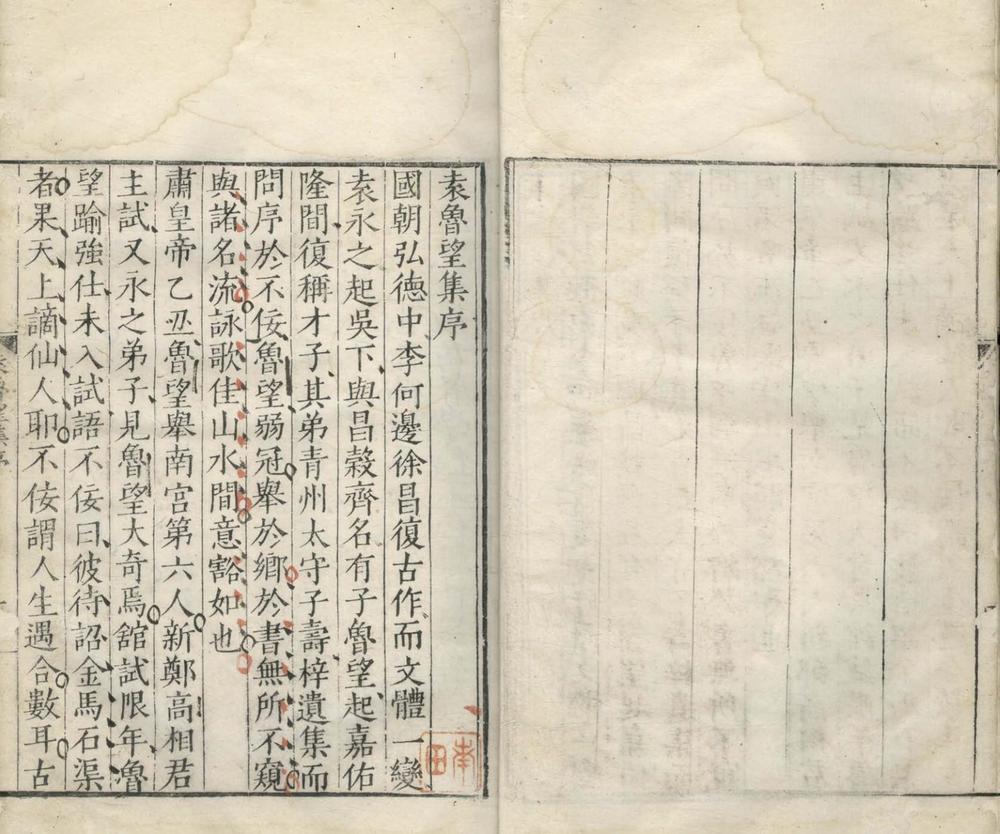 袁魯望集序
國朝弘德中李何邊徐昌復古作而文體一變
袁永之起吳下與昌穀齊名有子魯望起嘉佑
隆間復稱才子其弟青州太守子壽梓遺集而
問序於不佞魯望弱冠舉於鄉於書無所不窺
與諸名流詠歌佳山水間意豁如也
肅皇帝乙丑魯望舉南宮第六人新鄭高相君
主試又永之弟子見魯望大奇焉舘試限年魯
望踰強仕未入試語不佞曰彼待詔金馬石渠
者果天上謫仙人耶不佞謂人生遇合數耳古